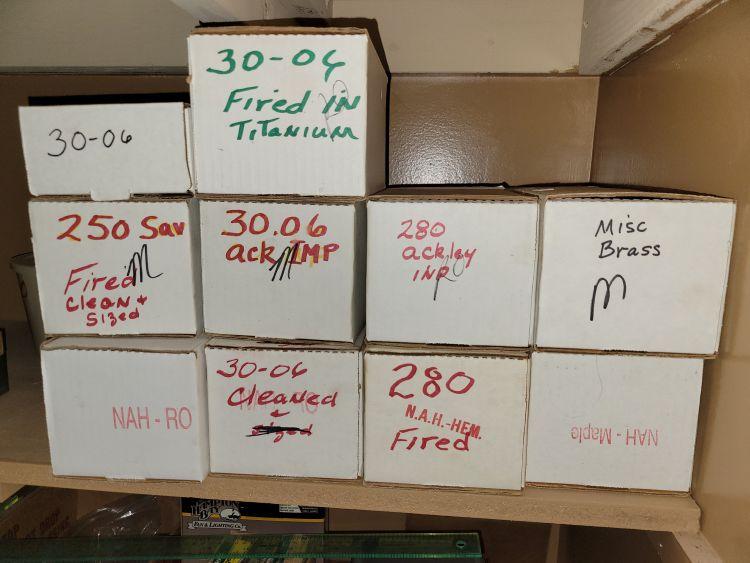 30-06
Fired in
Titanium
30-06
250 Sav
Fired M
Clean +
Sized
30.06
ack IMP
M
280
ackley
INP
Misc
Brass
M
NAH - RO
30-06
Cleaned
+
sized
280
N.A.H.-HEM.
Fired
NAH - Maple
FAN & LIGHTING CO.